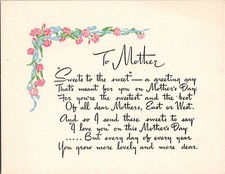 To Mother
"Sweets to the sweet" — a greeting gay
That's meant for you on Mother's Day
For you're the sweetest and the best
Of all dear Mothers, East or West.
And so I send these sweets to say
"I love you" on this Mother's Day
.....But every day of every year
You grow more lovely and more dear.